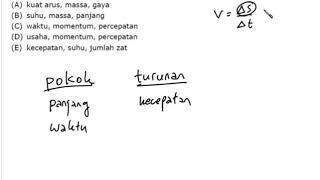 (A) kuat arus, massa, gaya
(B) suhu, massa, panjang
(C) waktu, momentum, percepatan
(D) usaha, momentum, percepatan
(E) kecepatan, suhu, jumlah zat
V = ΔS / Δt
pokok turunan
panjang kecepatan
waktu